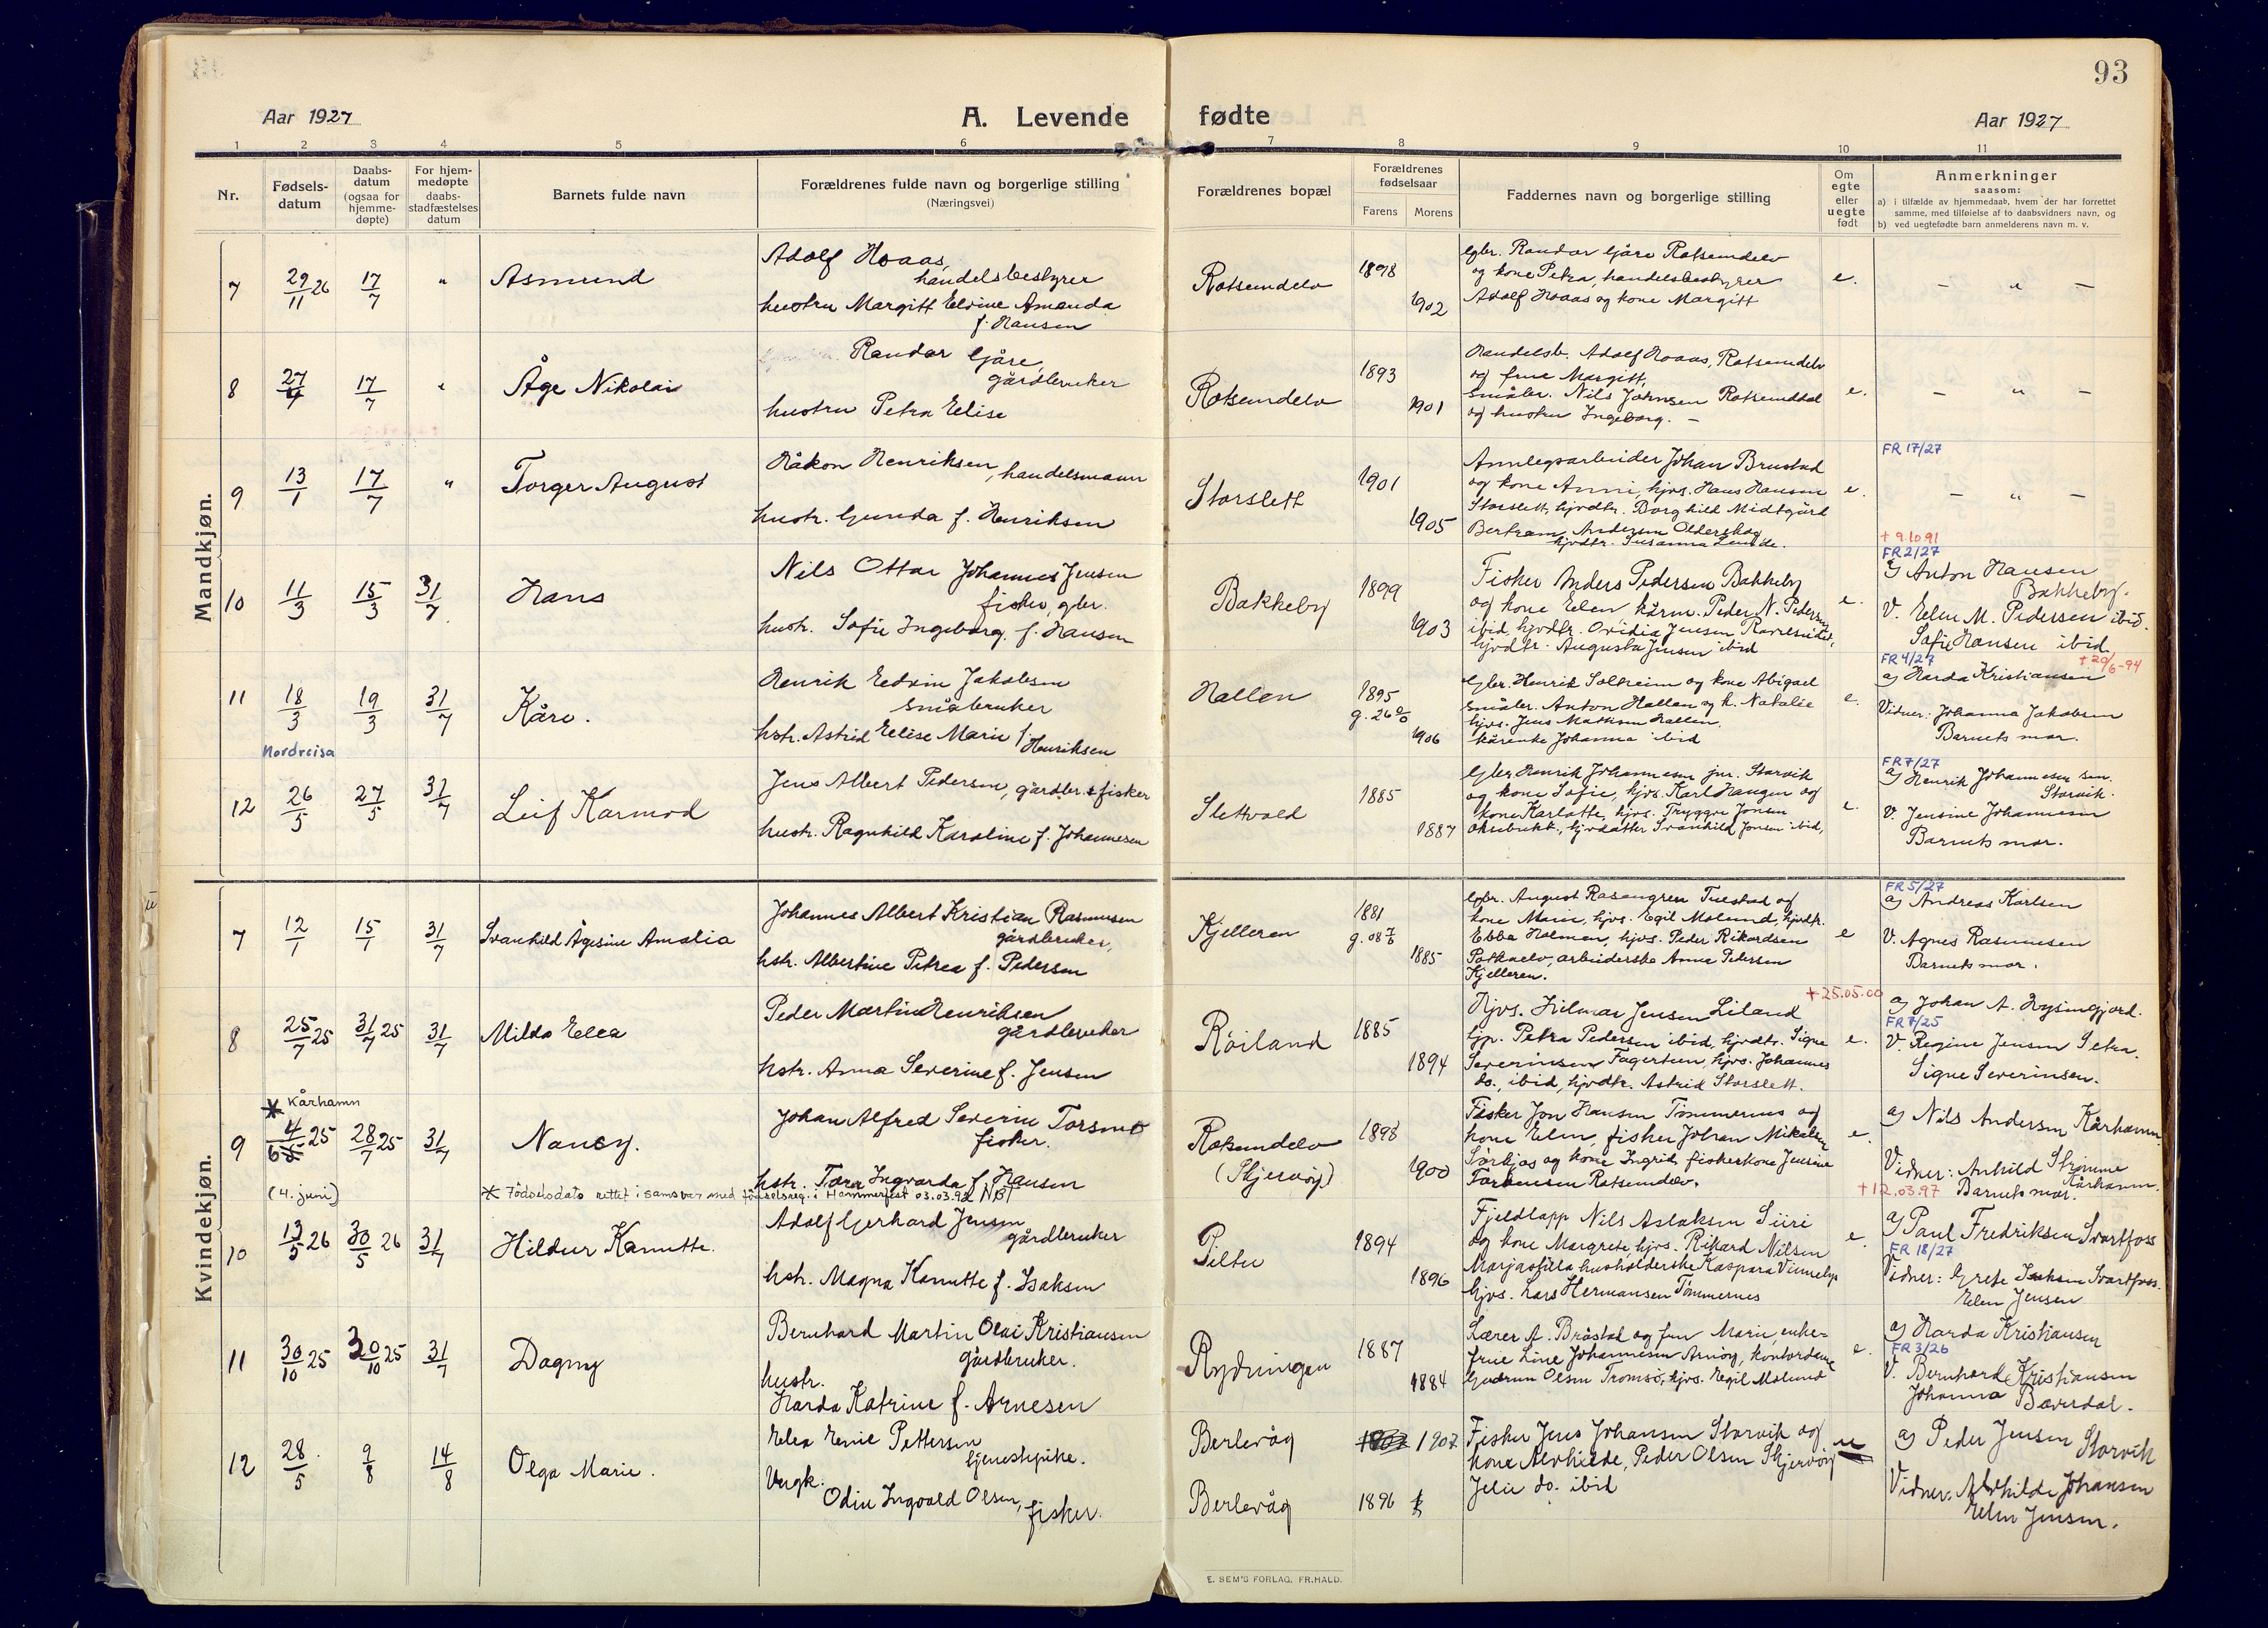 93
Aar 1927
A. Levende fødte
Aar 1927
1 2 3 4 5 6 7 8 9 10 11
Nr.
Fødsels-
datum
Daabs-
datum
(ogsaa for
hjemme-
døpte)
For hjem-
medøpte
daabs-
stadfæstelses
datum
Barnets fulde navn
Forældrenes fulde navn og borgerlige stilling
(Næringsvei)
Forældrenes bopæl
Forældrenes
fødselsaar
Farens Morens
Faddernes navn og borgerlige stilling
Om
egte
eller
uegte
født
Anmerkninger
saasom:
a) i tilfælde av hjemmedaab, hvem der har forrettet
samme, med tilføielse af to daabsvidners navn, og
b) ved uegtefødte barn anmelderens navn m. v.
Mandkjøn.
7 29/11 26 17/7 " Asmund
Adolf Hoaas,
handelsbestyrer
hustru Margitt Elvine Amanda
f. Hansen
Rotsundelv 1898
1902
Gbr. Randor Gjåre Rotsundelv
og kone Petra, handelsbestyrer
Adolf Hoaas og kone Margitt
e. — " —
8 27/4 17/7 " Åge Nikolai
Randor Gjåre,
gårdbruker
hustru Petra Elise
Rotsundelv 1893
1901
Handelsb. Adolf Hoaas, Rotsundelv
og frue Margitt,
småbr. Nils Johnsen Rotsunddal
og hustru Ingeborg. —
e. — " —
9 13/1 17/7 " Torger August
Håkon Henriksen, handelsmann
hustr. Gunda f. Henriksen
Storslett 1901
1905
Annlegsarbeider Johan Brustad
og kone Anni, hjvs. Hans Hansen
Storslett, hjvdtr. Borghild Midtgård
Bertram Andersen Olderskog
hjvdtr. Susanna Lunde.
e. FR 17/27
— " —
10 11/3 15/3 31/7 Hans
Nils Ottar Johannes Jensen
fisker, gbr.
hustr. Sofie Ingeborg f. Hansen
Bakkeby 1899
1903
Fisker Anders Pedersen Bakkeby
og kone Elen kårm. Peder N. Pedersen
ibid, hjvdtr. Ovidia Jensen
hjvdtr. Augusta Jensen ibid
e.
+ 9.10 91
FR 2/27
a) Anton Hansen
Bakkeby.
V. Elen M. Pedersen ibid.
Sofie Hansen ibid.
11 18/3 19/3 31/7 Kåre.
Nordreisa
Henrik Edvin Jakobsen
småbruker
hstr. Astrid Elise Marie f. Henriksen
Hallen 1895
g. 26
1906
Gbr. Henrik Solheim og kone Abigael
småbr. Anton Hallen og k. Natalie
hjvs. Jens Mathisen Hallen.
kårenke Johanna ibid
e.
FR 4/27 + 20/6-94
a) Harda Kristiansen
Vidner: Johanna Jakobsen
Barnets mor.
12 26/5 27/5 31/7 Leif Karmod
Jens Albert Pedersen, gårdbr. & fisker
hustr. Ragnhild Karoline f. Johannesen
Slettvold 1885
1887
Gbr. Henrik Johannesen jnr. Storvik
og kone Sofie, hjvs. Karl Haugen og
kone Karlotte, hjvs. Tryggve Jensen
Oksebukt., hjvdatter Svanhild Jensen ibid,
e.
FR 7/27
a) Henrik Johannesen sen.
Storvik.
V. Jensine Johannesen
Barnets mor.
Kvindekjøn.
7 12/1 15/1 31/7 Svanhild Ågesine Amalia
Johannes Albert Kristian Rasmussen
gårdbruker,
hstr. Albertine Petrea f. Pedersen
Kjelleren 1881
g. 08
1885
Gbr. August Rosengren Tuestad og
kone Marie, hjvs. Egil Molund, hjvdtr.
Ebba Holmen, hjvs. Peder Rikardsen
arbeiderske Anna Pedersen
Kjelleren.
e
FR 5/27
a) Andreas Karlsen
V. Agnes Rasmussen
Barnets mor.
8 25/7 25 31/7 25 31/7 Milda Elea
Peder Martin Henriksen
gårdbruker
hstr. Anna Severine f. Jensen
Röiland 1885
1894
Hjvs. Hilmar Jensen Liland
tjp. Petra Pedersen ibid, hjvdtr. Signe
Severinsen Fagertun, hjvs. Johannes
do., ibid, hjvdtr. Astrid Storslett.
e.
+ 25.05.00
a) Johan A. Lysingjord.
FR 7/25
V. Regine Jensen Setra.
Signe Severinsen.
* Kårhamn
9 4/6 25 28/7 25 31/7 Nancy.
(4. juni)
Johan Alfred Severin Torsmo
fisker.
hstr. Tora Ingvarda f. Hansen
* Fødselsdato rettet i samsvar med fødselsreg. i Hammerfest 03.03.92 NBT
Rotsundelv
(Skjervøy)
1898
1900
Fisker Jon Hansen Tømmernes og
kone Elen, fisker Johan Mikalsen
Sørkjos og kone Ingrid, fiskerkone Jensine
Torbensen Rotsundelv.
e.
a) Nils Andersen Kårhamn.
Vidner: Anhild Strømme
Kårhamn.
Barnets mor.
+ 12.03.97
10 13/5 26 30/5 26 31/7 Hildur Kanutte.
Adolf Gerhard Jensen
gårdbruker
hstr. Magna Kanutte f. Isaksen
Piltu 1894
1896
Fjeldlapp Nils Aslaksen Siiri
og kone Margrete, hjvs. Rikard Nilsen
Marjasilla husholderske Kaspara Vinnelys
hjvs. Lars Hermansen Tømmernes
e.
a) Paul Fredriksen Svartfoss
FR 18/27
Vidner: Grete Isaksen Svartfoss.
Elen Jensen
11 30/10 25 30/10 25 31/7 Dagny
Bernhard Martin Olai Kristiansen
gårdbruker.
hustr.
Harda Katrine f. Arnesen
Rydningen 1887
1884
Lærer A. Bråstad og fru Marie, enke-
frue Line Johannesen Arnöy, kontordame
Gudrun Olsen Tromsö, hjvs. Egil Molund
e.
a) Harda Kristiansen
FR 3/26
V. Bernhard Kristiansen
Johanna Bæverdal.
12 28/5 9/8 14/8 Olga Marie.
Elea Emie Pettersen
tjenestepike.
Ungk.
Odin Ingvald Olsen, fisker.
Berlevåg 1907
Berlevåg 1896
Fisker Jens Johansen Storvik og
kone Alvhilde, Peder Olsen Skjervöy
Jelie do. ibid
ue
a) Peder Jensen Storvik
Vidner. Alvhilde Johansen
Elen Jensen.
E. SEM'S FORLAG, FR.HALD.